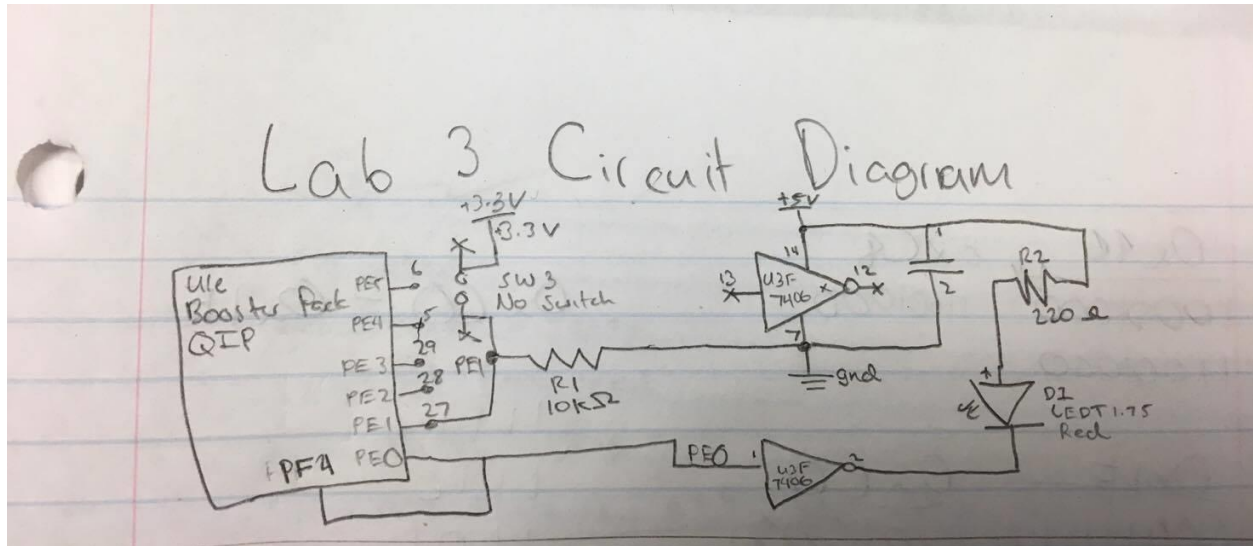 Lab 3 Circuit Diagram
+3.3V
+3.3V
+5V
U1e
Booster Pack
QIP
PE5
6
PE4
5
PE3
29
PE2
28
PE1
27
PE0
PF4
SW3
No Switch
PE1
R1
10kΩ
14
13
U3F
7406
12
7
gnd
1
2
R2
220 Ω
+
D1
LEDT1.75
Red
PE0
1
U3F
7406
2